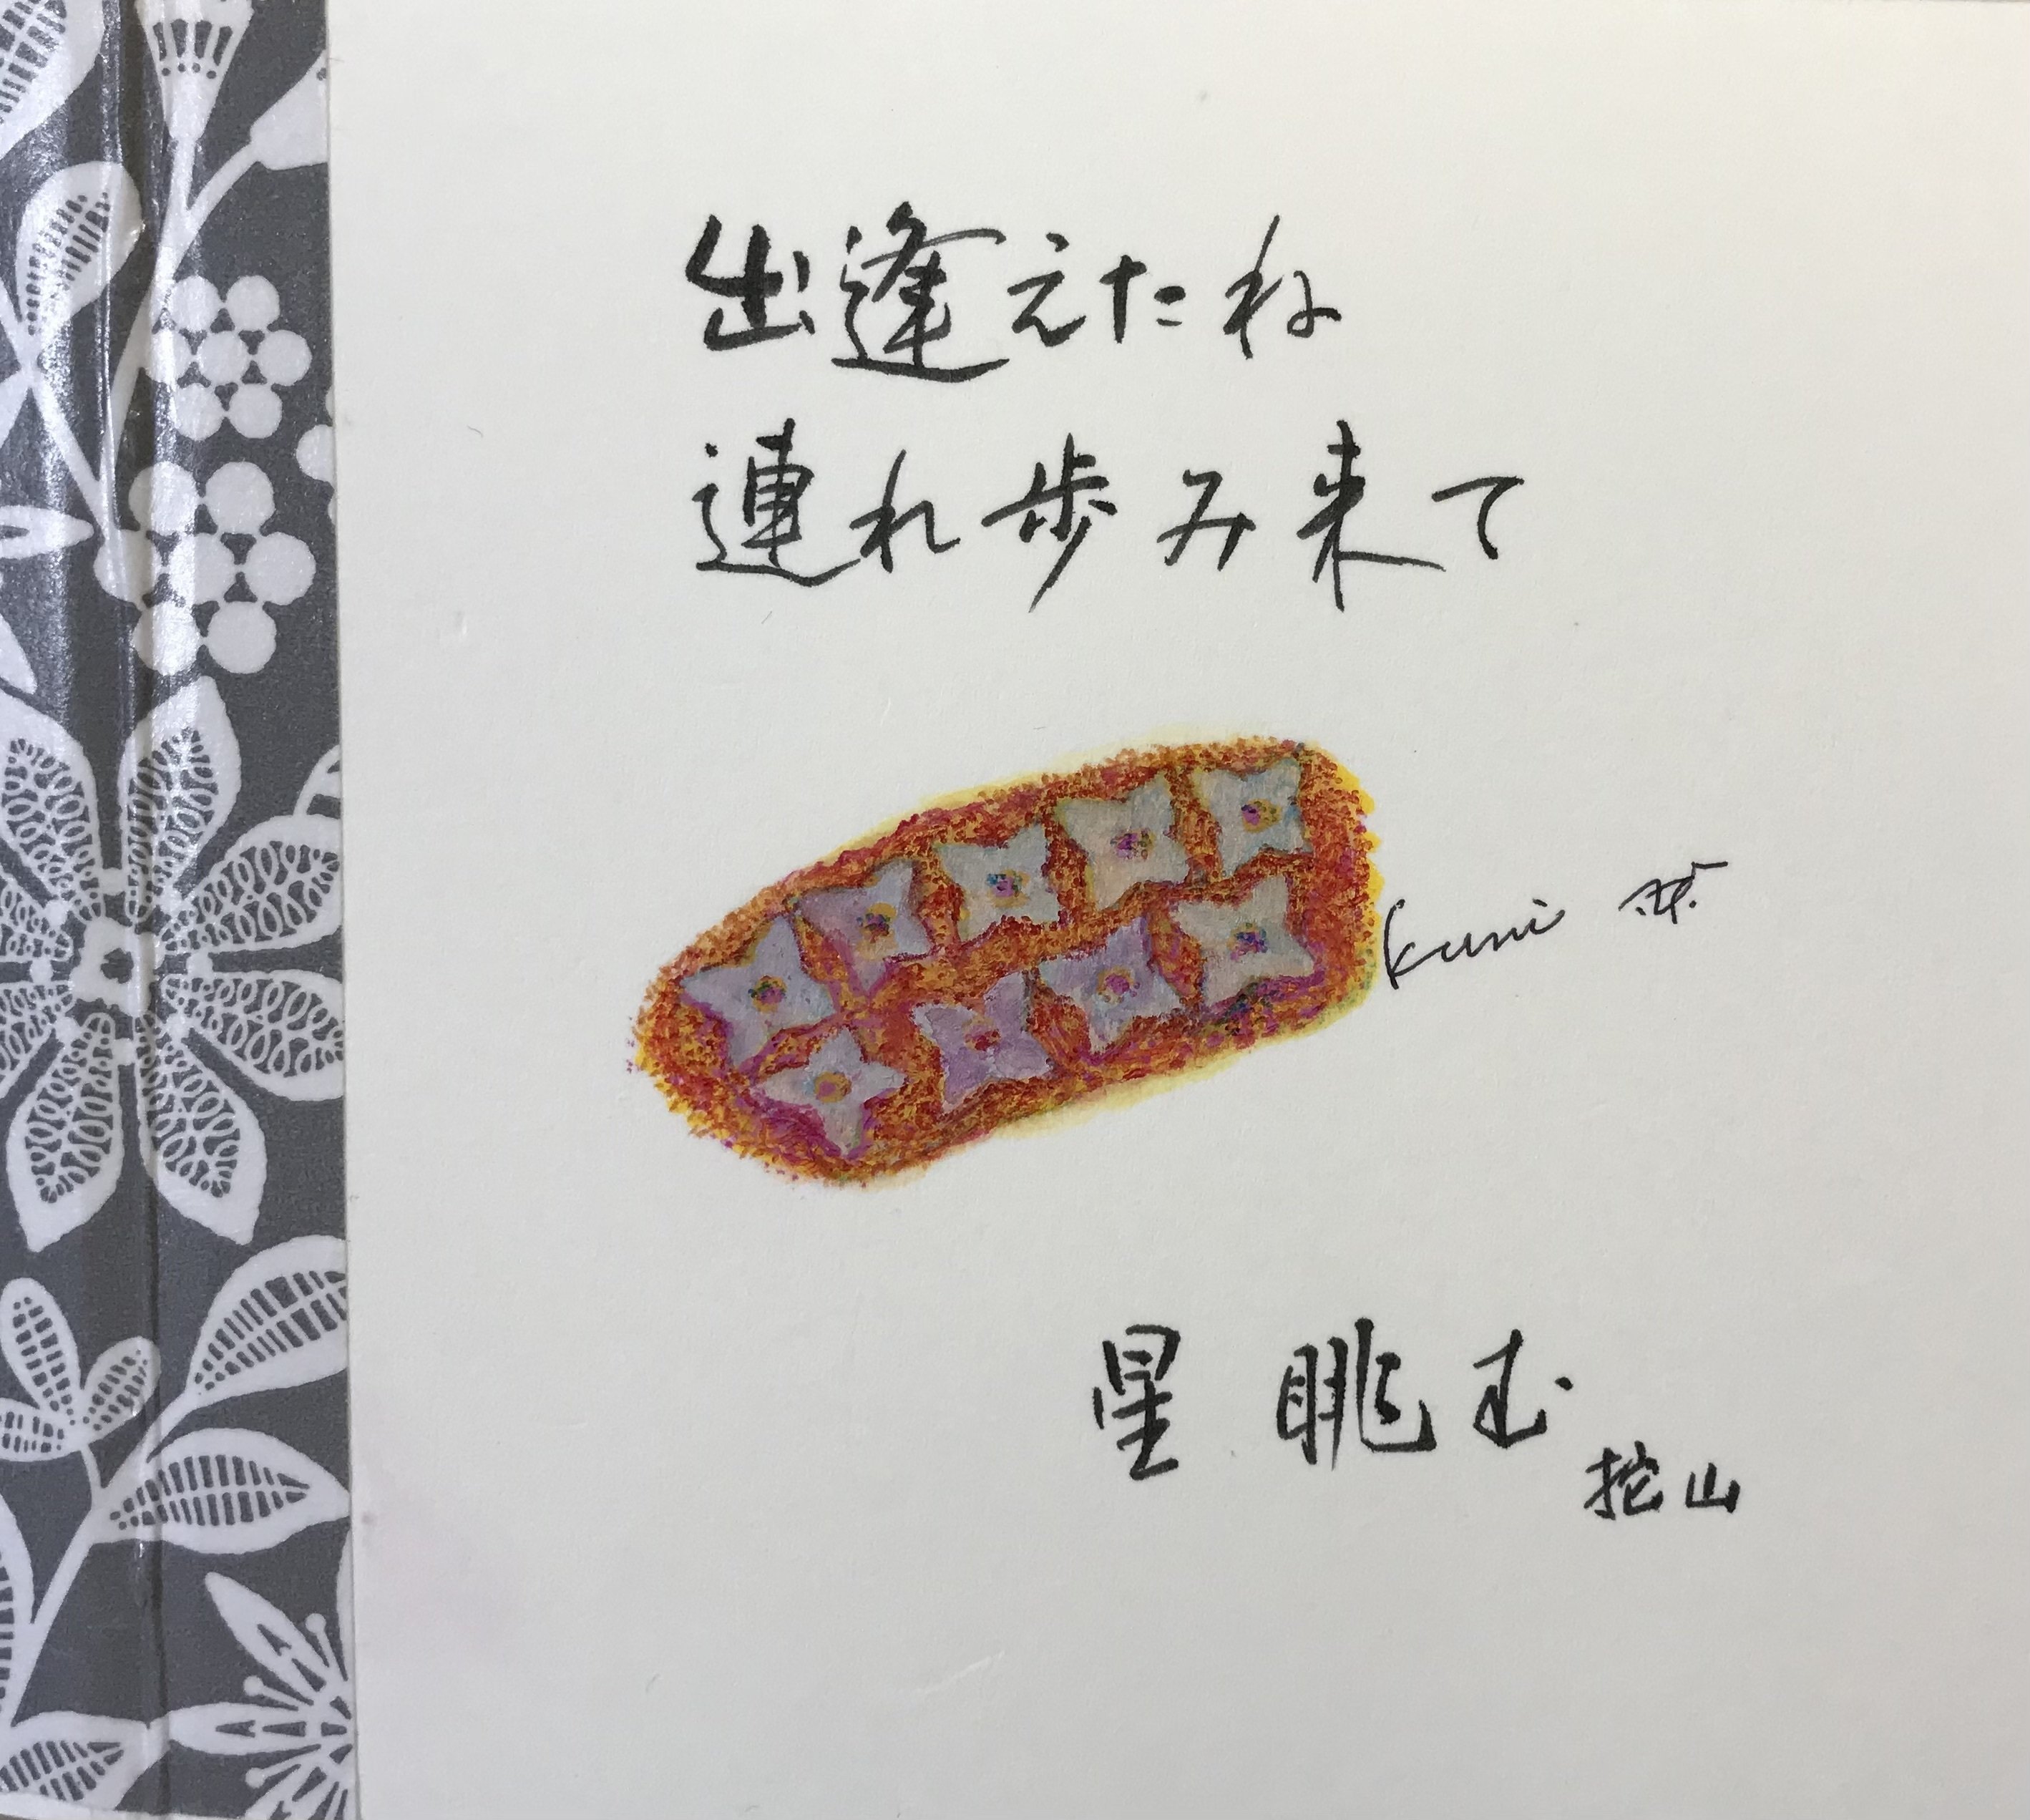 出逢えたね
連れ歩み来て
kuni
星眺む
挖山